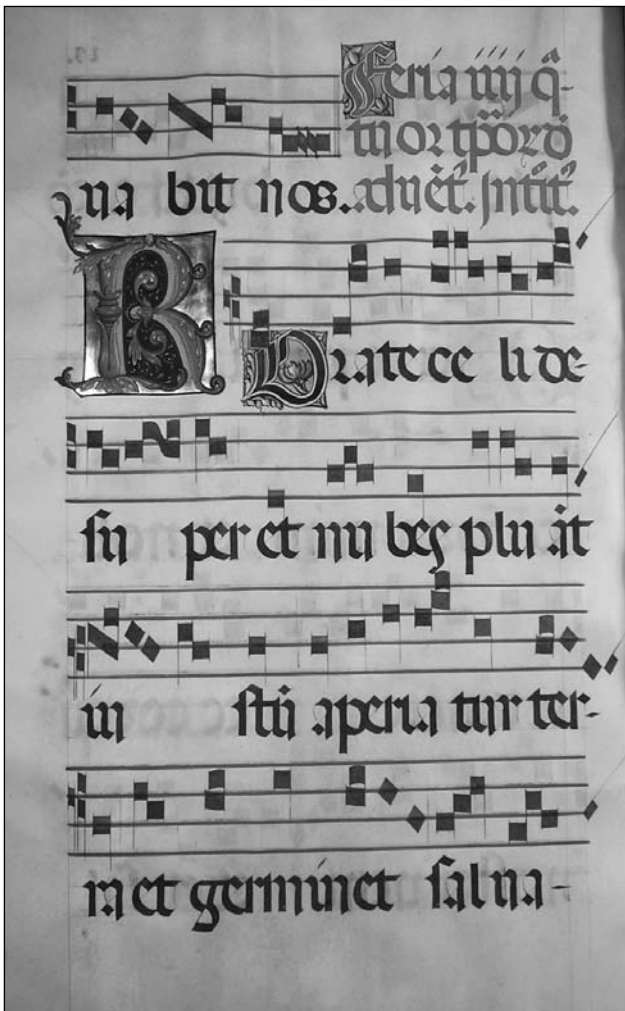 Feria iiij q̃-
tuor tp̃orõ
na bit nos. aduẽt. Intit̃.
R Orate ce li de-
su per et nu bes plu ãt
iu stũ aperia tur ter-
ra et germinet salua-